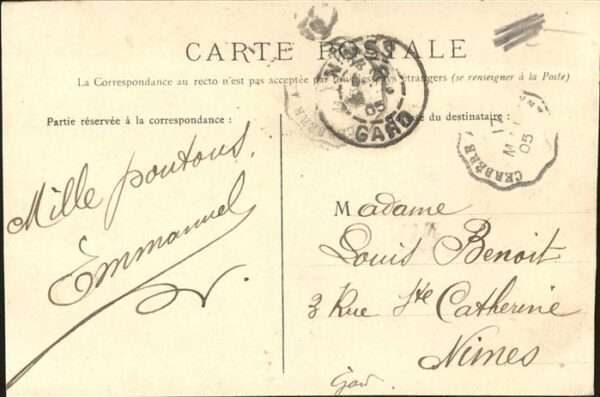 CARTE POSTALE
La Correspondance au recto n'est pas acceptée par tous les pays étrangers (se renseigner à la Poste)
Partie réservée à la correspondance :
du destinataire :
GARD
05
CERBÈRE
05
Mille poutous.
Emmanuel
Madame
Louis Benoit
3 Rue Ste Catherine
Nimes
Gard.